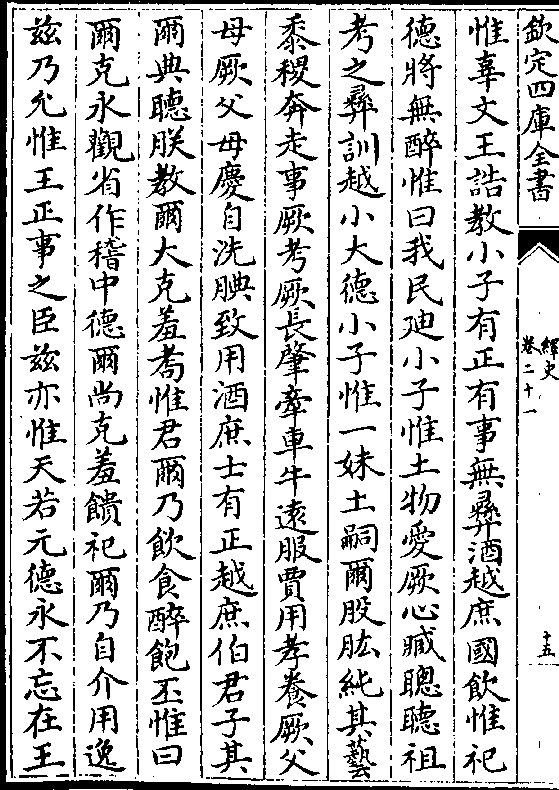 欽定四庫全書
繹史
卷二十一
十五
惟辜文王誥教小子有正有事無彛酒越庶國飲惟祀
德將無醉惟曰我民廸小子惟土物愛厥心臧聰聽祖
考之彛訓越小大德小子惟一妹土嗣爾股肱純其藝
黍稷奔走事厥考厥長肇牽車牛遠服賈用孝養厥父
母厥父母慶自洗腆致用酒庶士有正越庶伯君子其
爾典聽朕教爾大克羞耇惟君爾乃飲食醉飽丕惟曰
爾克永觀省作稽中德爾尚克羞饋祀爾乃自介用逸
兹乃允惟王正事之臣兹亦惟天若元德永不忘在王